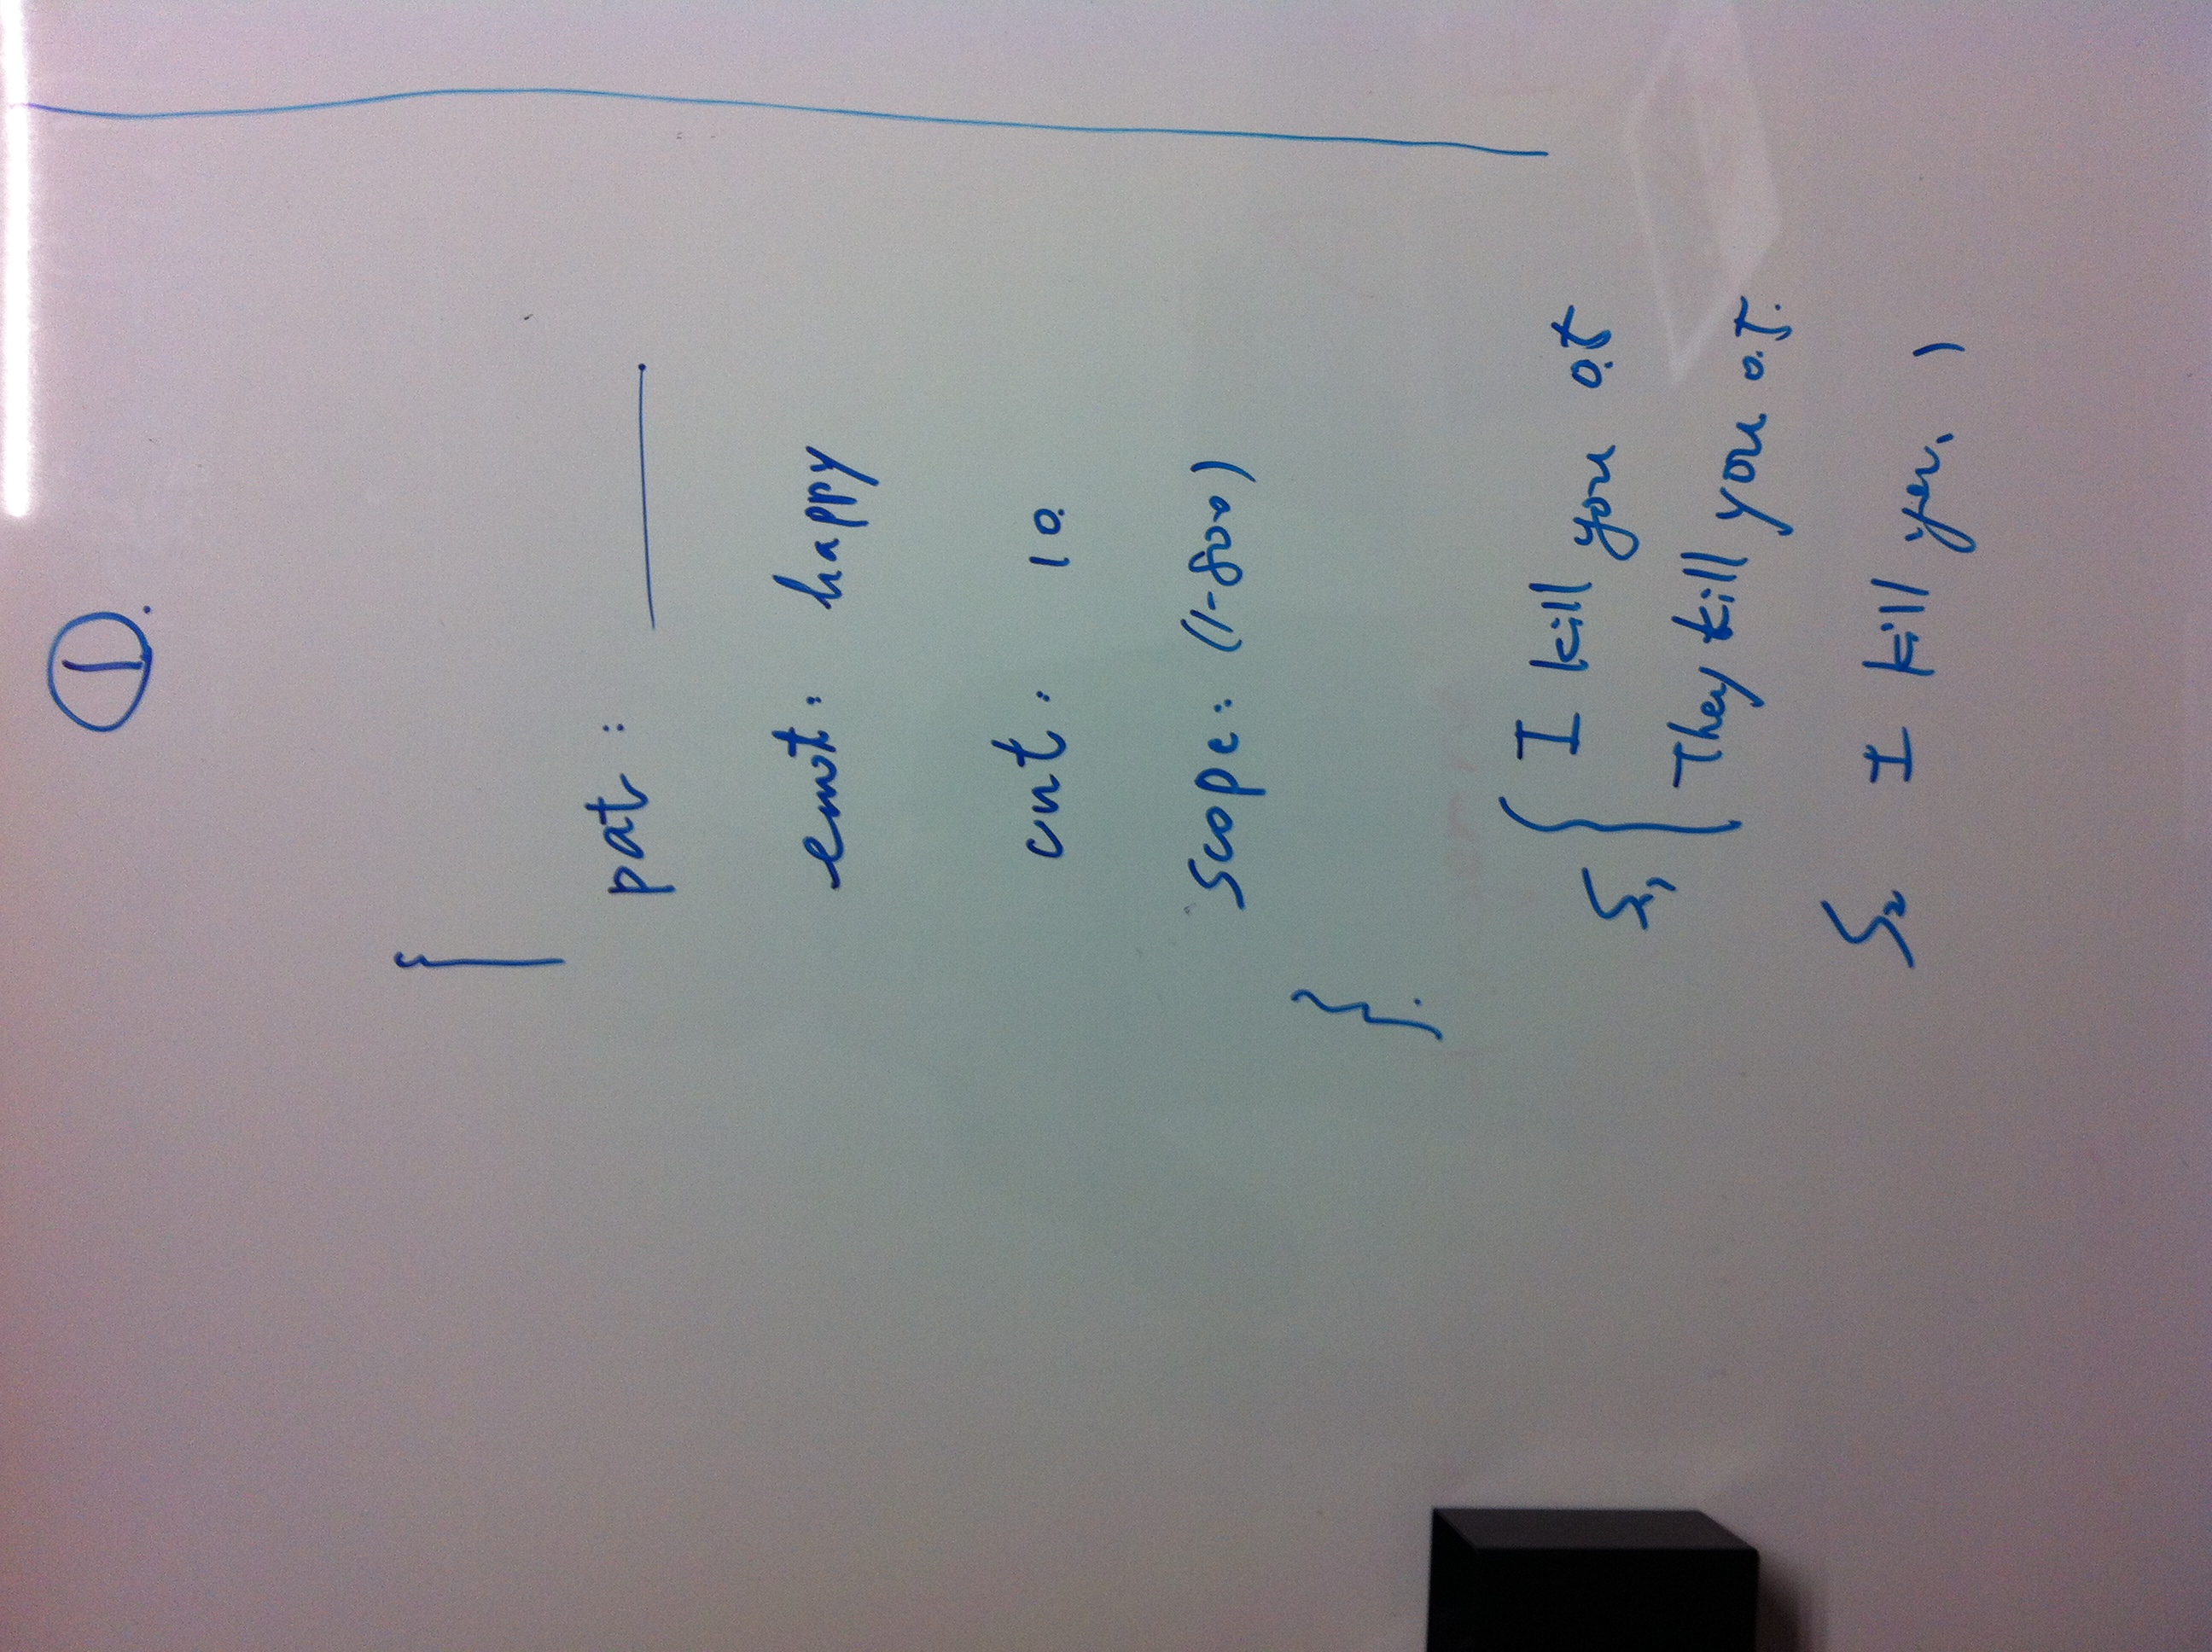 ①.
{
pat : ______
emot: happy
cnt: 10.
scope: (1-800)
}.
S1, { I kill you 0.5
They kill you 0.5.
S2 I kill you, 1